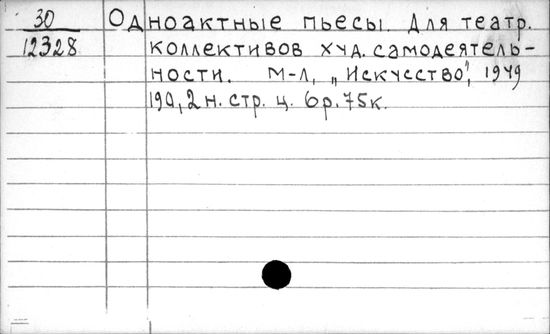 30
12328
Одноактные пьесы. Для театр.
коллективов худ. самодеятель-
ности. М-Л, „Искусство", 1949
190, 2 н. стр. ц. 6р. 75к.